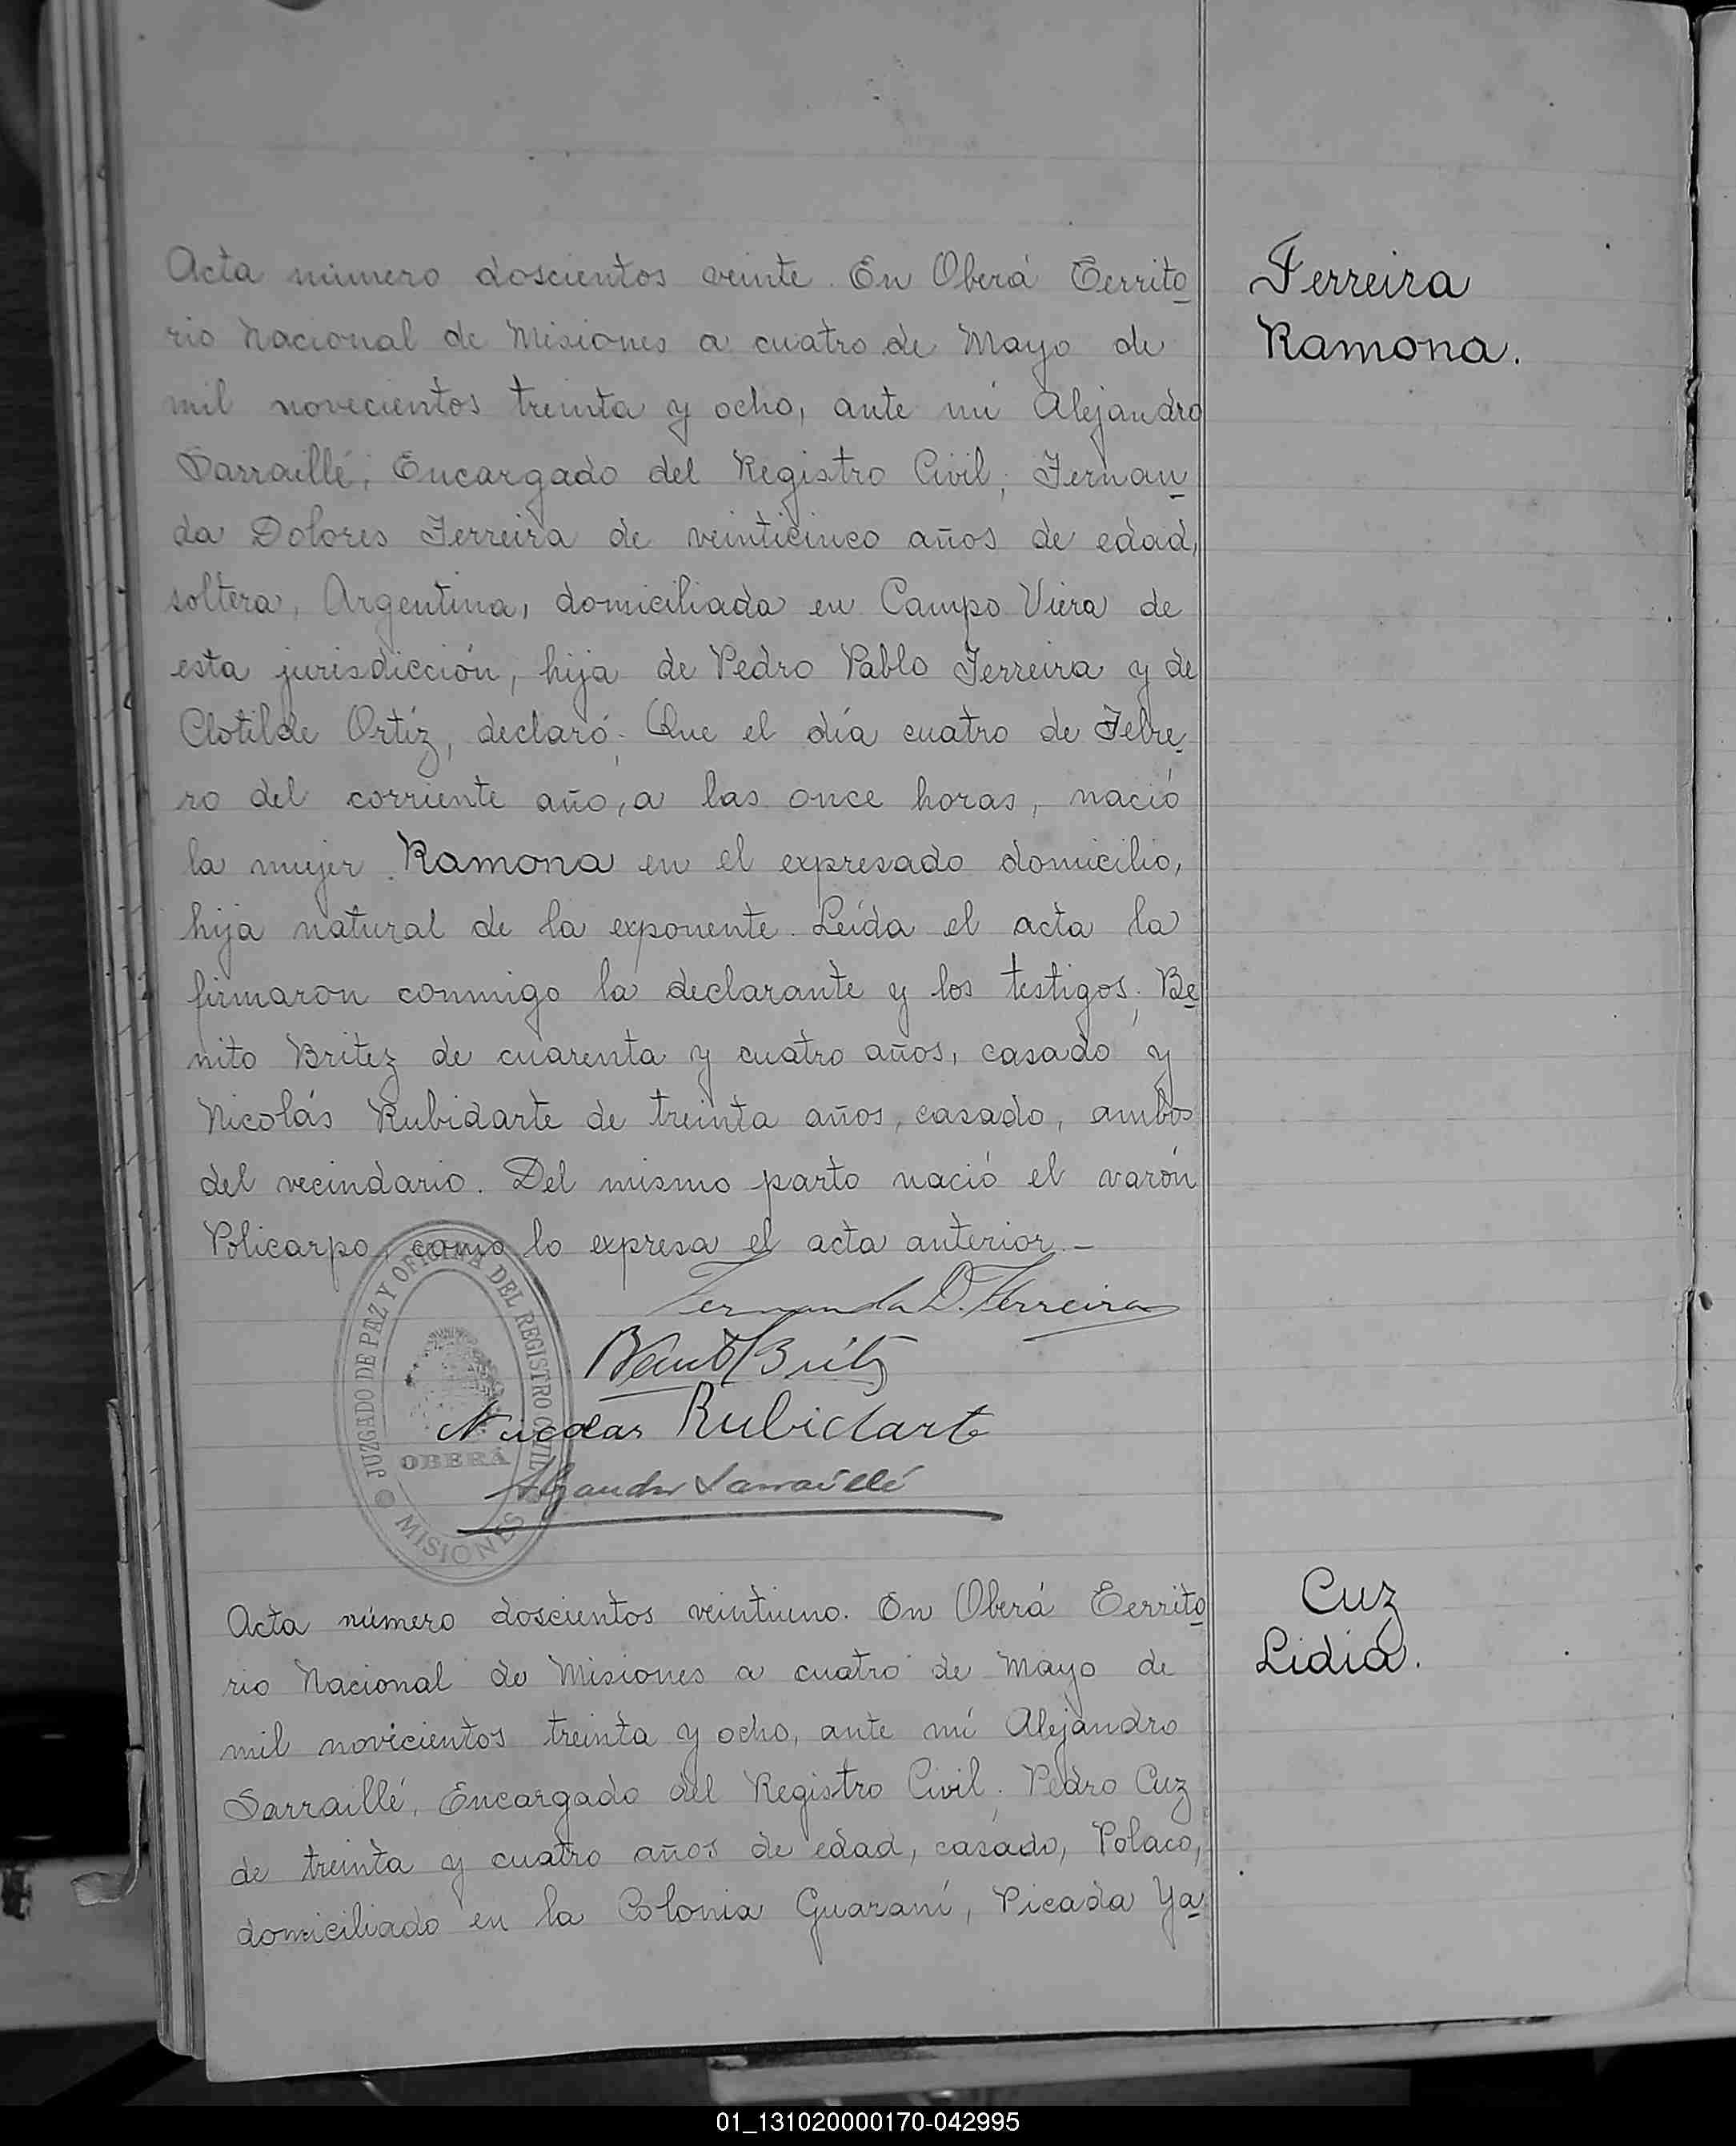 Acta número doscientos veinte. En Oberá Territo
rio Nacional de Misiones a cuatro de Mayo de
mil novecientos treinta y ocho, ante mí Alejandro
Sarraillé, Encargado del Registro Civil; Fernan
da Dolores Ferreira de veinticinco años de edad,
soltera, Argentina, domiciliada en Campo Viera de
esta jurisdicción, hija de Pedro Pablo Ferreira y de
Clotilde Ortíz, declaró; Que el día cuatro de Febre
ro del corriente año, a las once horas, nació
la mujer Ramona en el expresado domicilio,
hija natural de la exponente. Leída el acta la
firmaron conmigo la declarante y los testigos; Be
nito Britez de cuarenta y cuatro años, casado y
Nicolás Rubidarte de treinta años, casado, ambos
del vecindario. Del mismo parto nació el varón
Policarpo, como lo expresa el acta anterior.—
Ferreira
Ramona.
Fernanda D. Ferreira
Benito Britz
Nicolas Rubidarte
Alejandro Sarraillé
JUZGADO DE PAZ Y OFICINA DEL REGISTRO CIVIL
OBERÁ
MISIONES
Acta número doscientos veintiuno. En Oberá Territo
rio Nacional de Misiones a cuatro de Mayo de
mil novicientos treinta y ocho, ante mí Alejandro
Sarraillé, Encargado del Registro Civil; Pedro Cuz
de treinta y cuatro años de edad, casado, Polaco,
domiciliado en la Colonia Guaraní, Picada Ya
Cuz
Lidia.
01_131020000170-042995